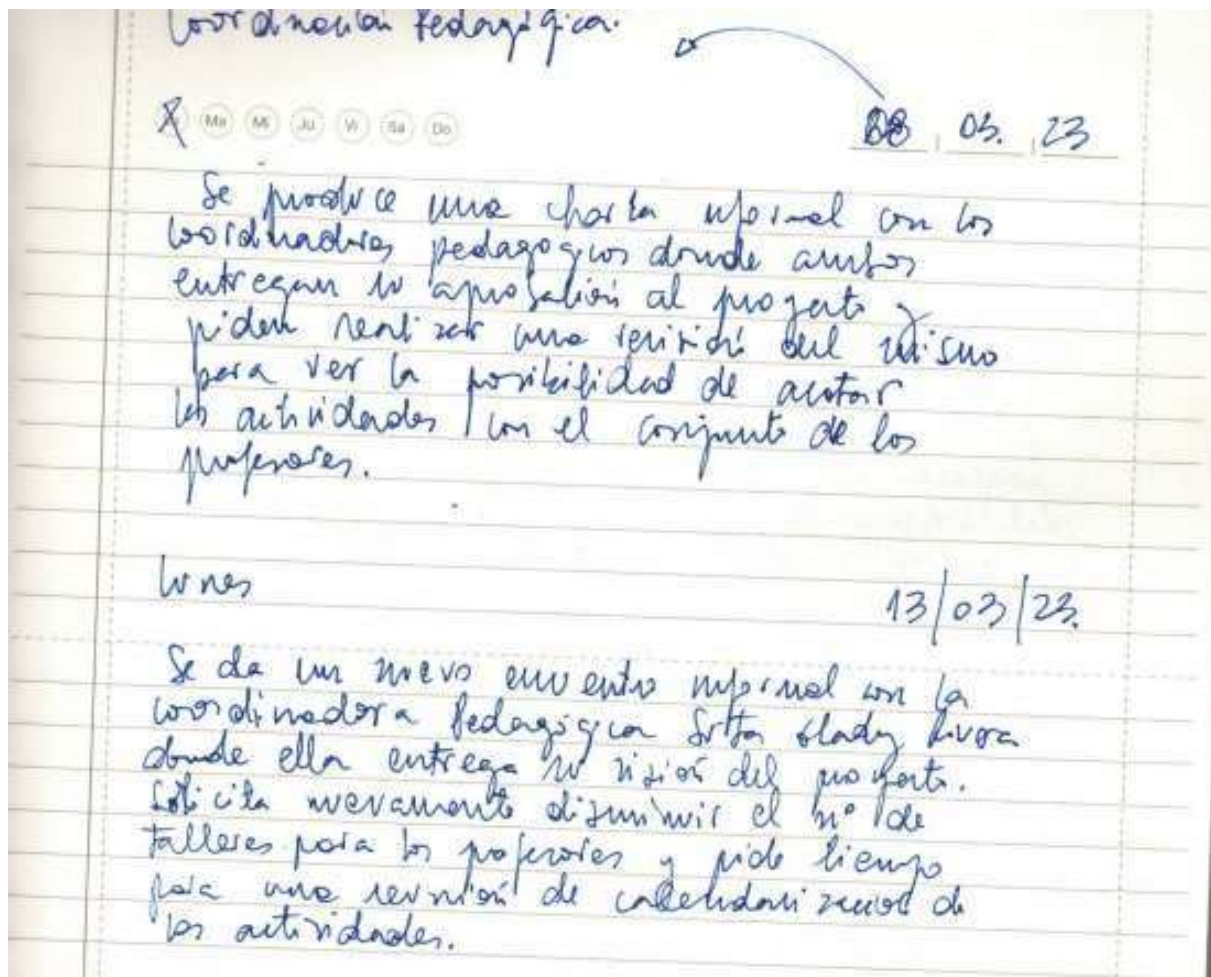 Coordinación Pedagógica.
Ma Mi Ju Vi Sa Do
08 03. 23
Se produce una charla informal con los
coordinadores pedagogicos donde ambos
entregan su aprobación al proyecto y
piden realizar una revisión del mismo
para ver la posibilidad de acotar
las actividades con el conjunto de los
profesores.
lunes
13/03/23.
Se da un nuevo encuentro informal con la
coordinadora Pedagógica Srtta Glady
donde ella entrega su visión del proyecto.
Solicita nuevamente disminuir el nº de
talleres para los profesores y pide tiempo
para una reunión de calendarización de
las actividades.